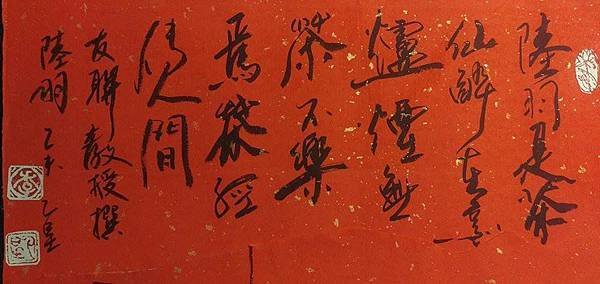 陸羽是茶
仙醉在裊
爐煙無
茶不樂
焉茶經
人間
友聯教授撰
陸羽 乙未